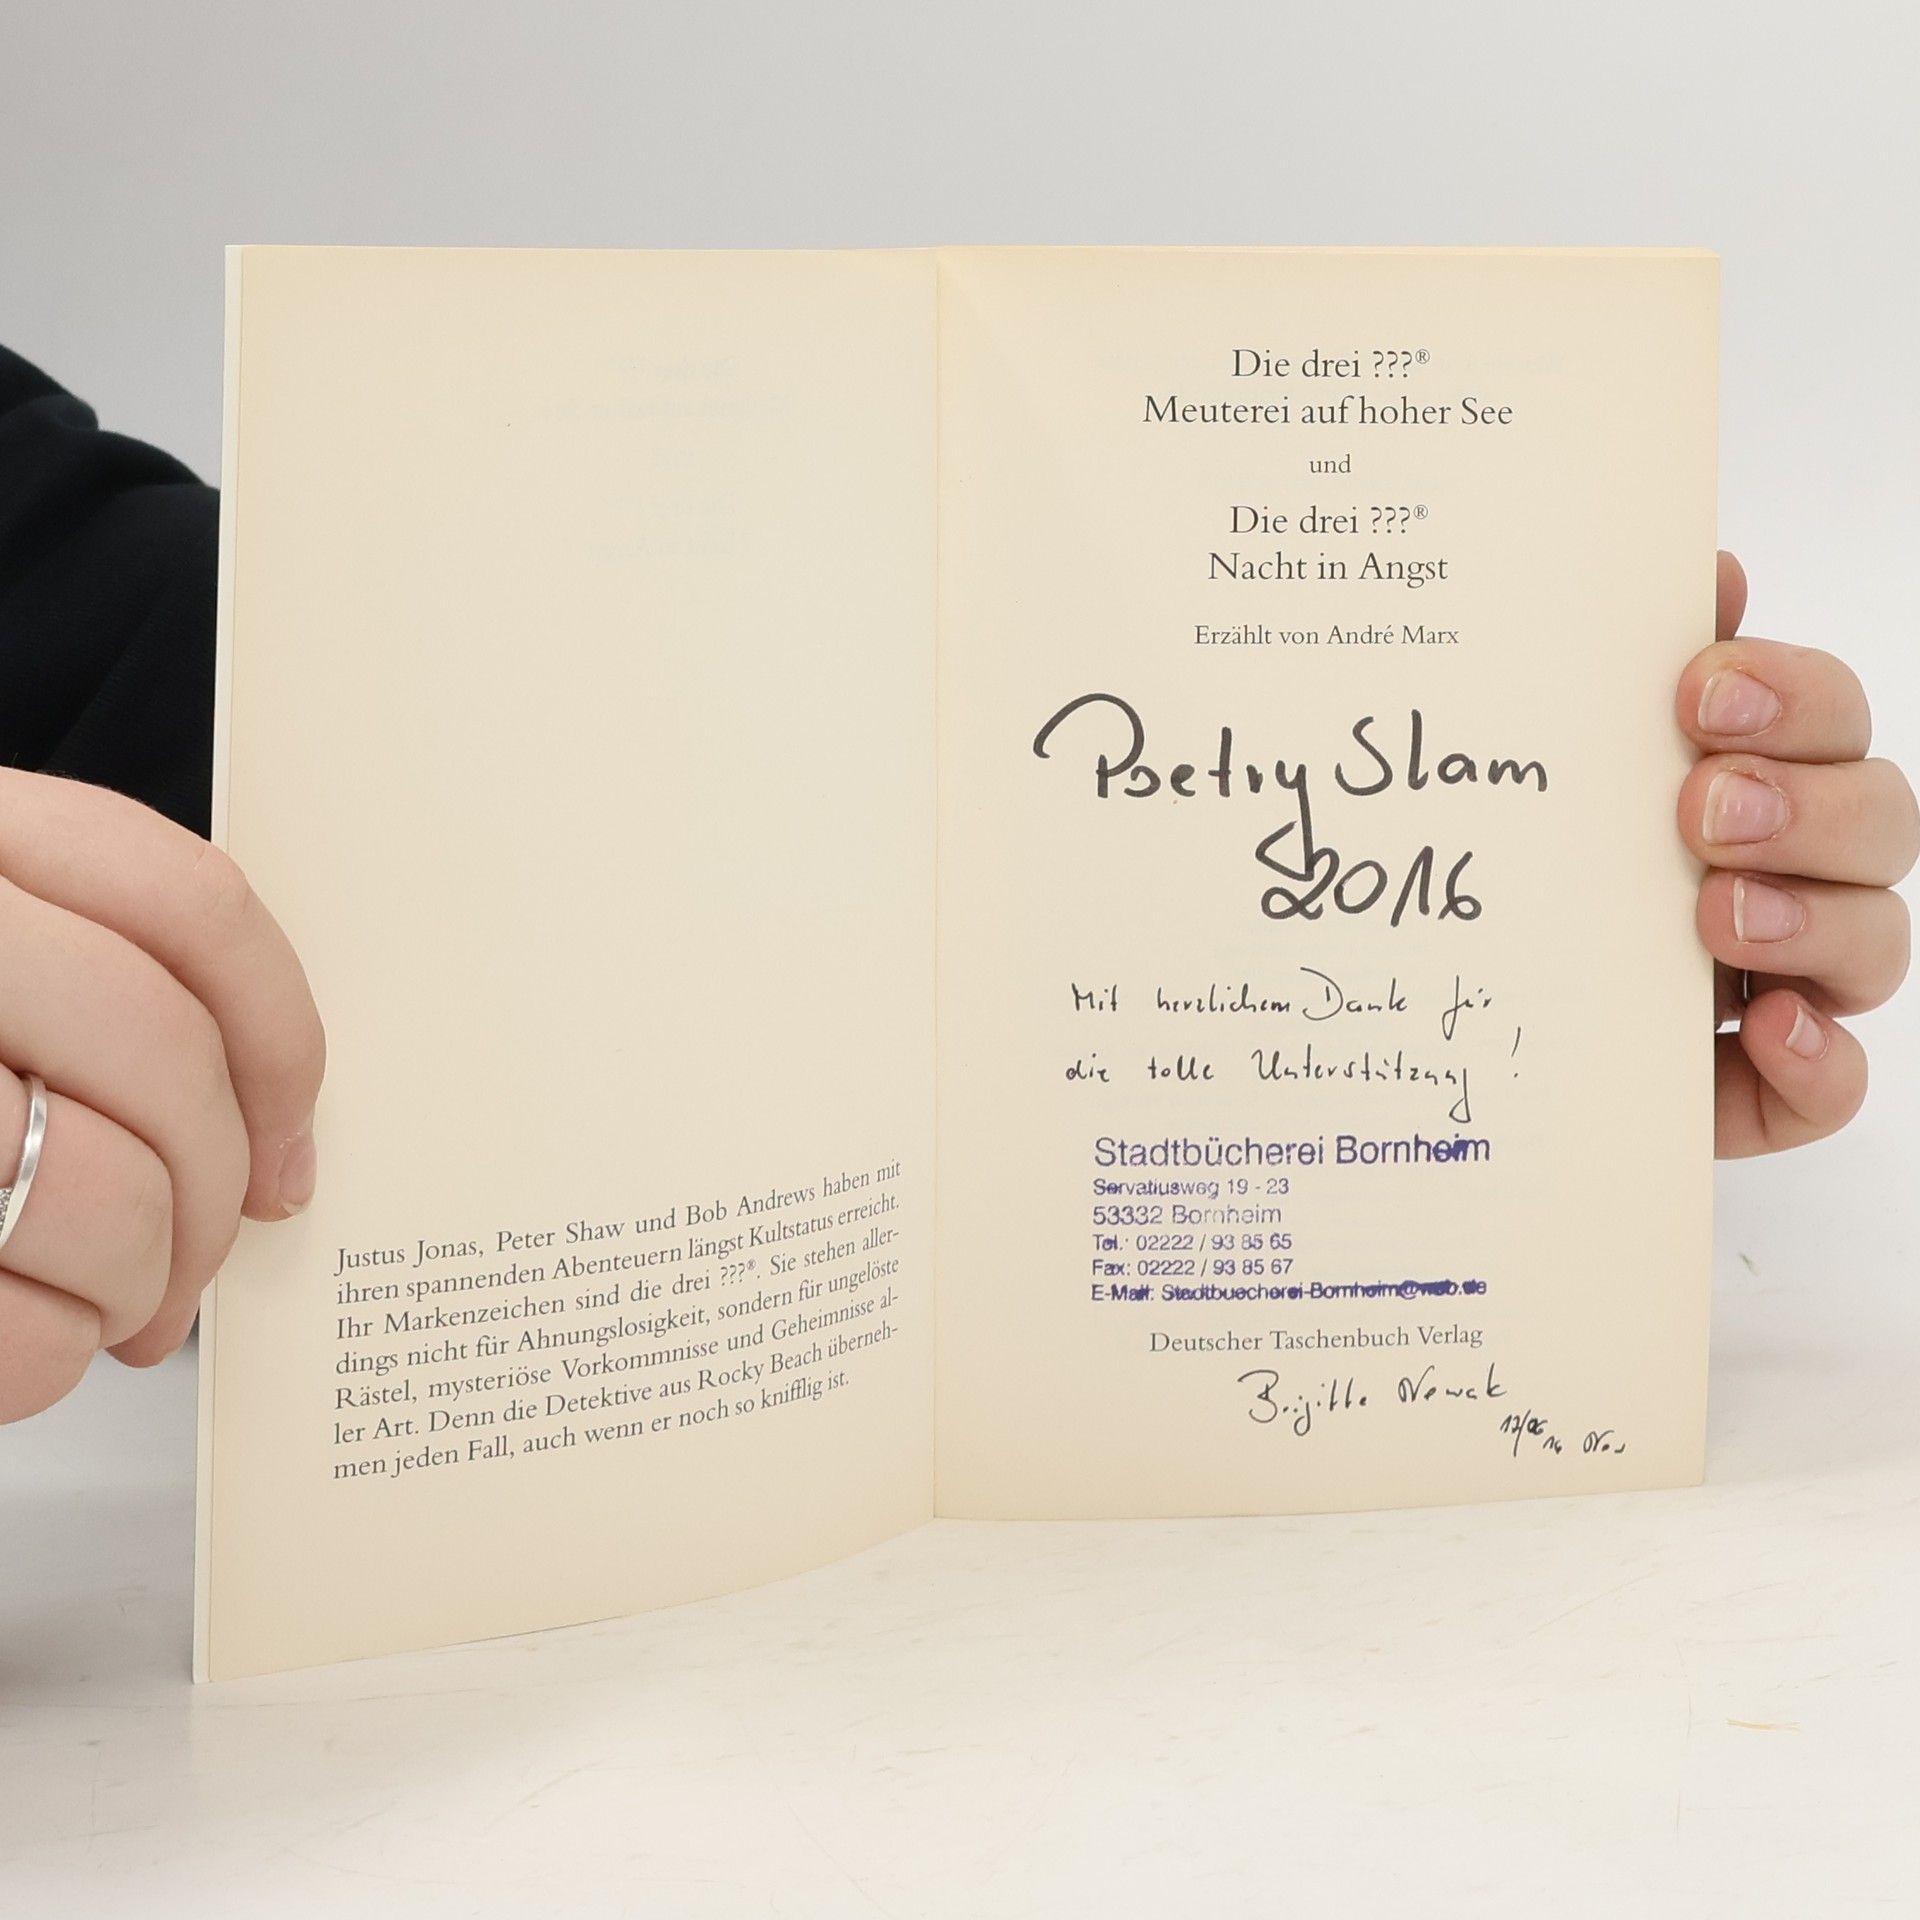 Justus Jonas, Peter Shaw und Bob Andrews haben mit
ihren spannenden Abenteuern längst Kultstatus erreicht.
Ihr Markenzeichen sind die drei ???®. Sie stehen aller-
dings nicht für Ahnungslosigkeit, sondern für ungelöste
Rästel, mysteriöse Vorkommnisse und Geheimnisse al-
ler Art. Denn die Detektive aus Rocky Beach überneh-
men jeden Fall, auch wenn er noch so knifflig ist.
Die drei ???®
Meuterei auf hoher See
und
Die drei ???®
Nacht in Angst
Erzählt von André Marx
Poetry Slam
2016
Mit herzlichem Dank für
die tolle Unterstützung!
Stadtbücherei Bornheim
Servatiusweg 19 - 23
53332 Bornheim
Tel.: 02222 / 93 85 65
Fax: 02222 / 93 85 67
E-Mail: Stadtbuecherei-Bornheim@web.de
Deutscher Taschenbuch Verlag
Brigitte Nowak